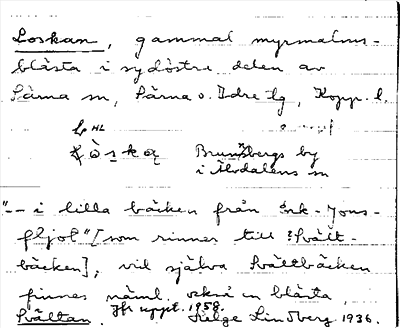 Loskan, gammal myrmalms-
blästa i sydöstra delen av
Särna sn, Särna o. Idre tg, Kopp. l.
L HL
lòską Brunnbergs by
i Älvdalens sn
"-- i lilla bäcken från Ärk-Jons-
fljot" [som rinner till Svält-
bäcken], vid själva Svältbäcken
finnes näml. också en blästa,
Svältan. Jfr uppt. 1958.
Helge Lindberg 1936.